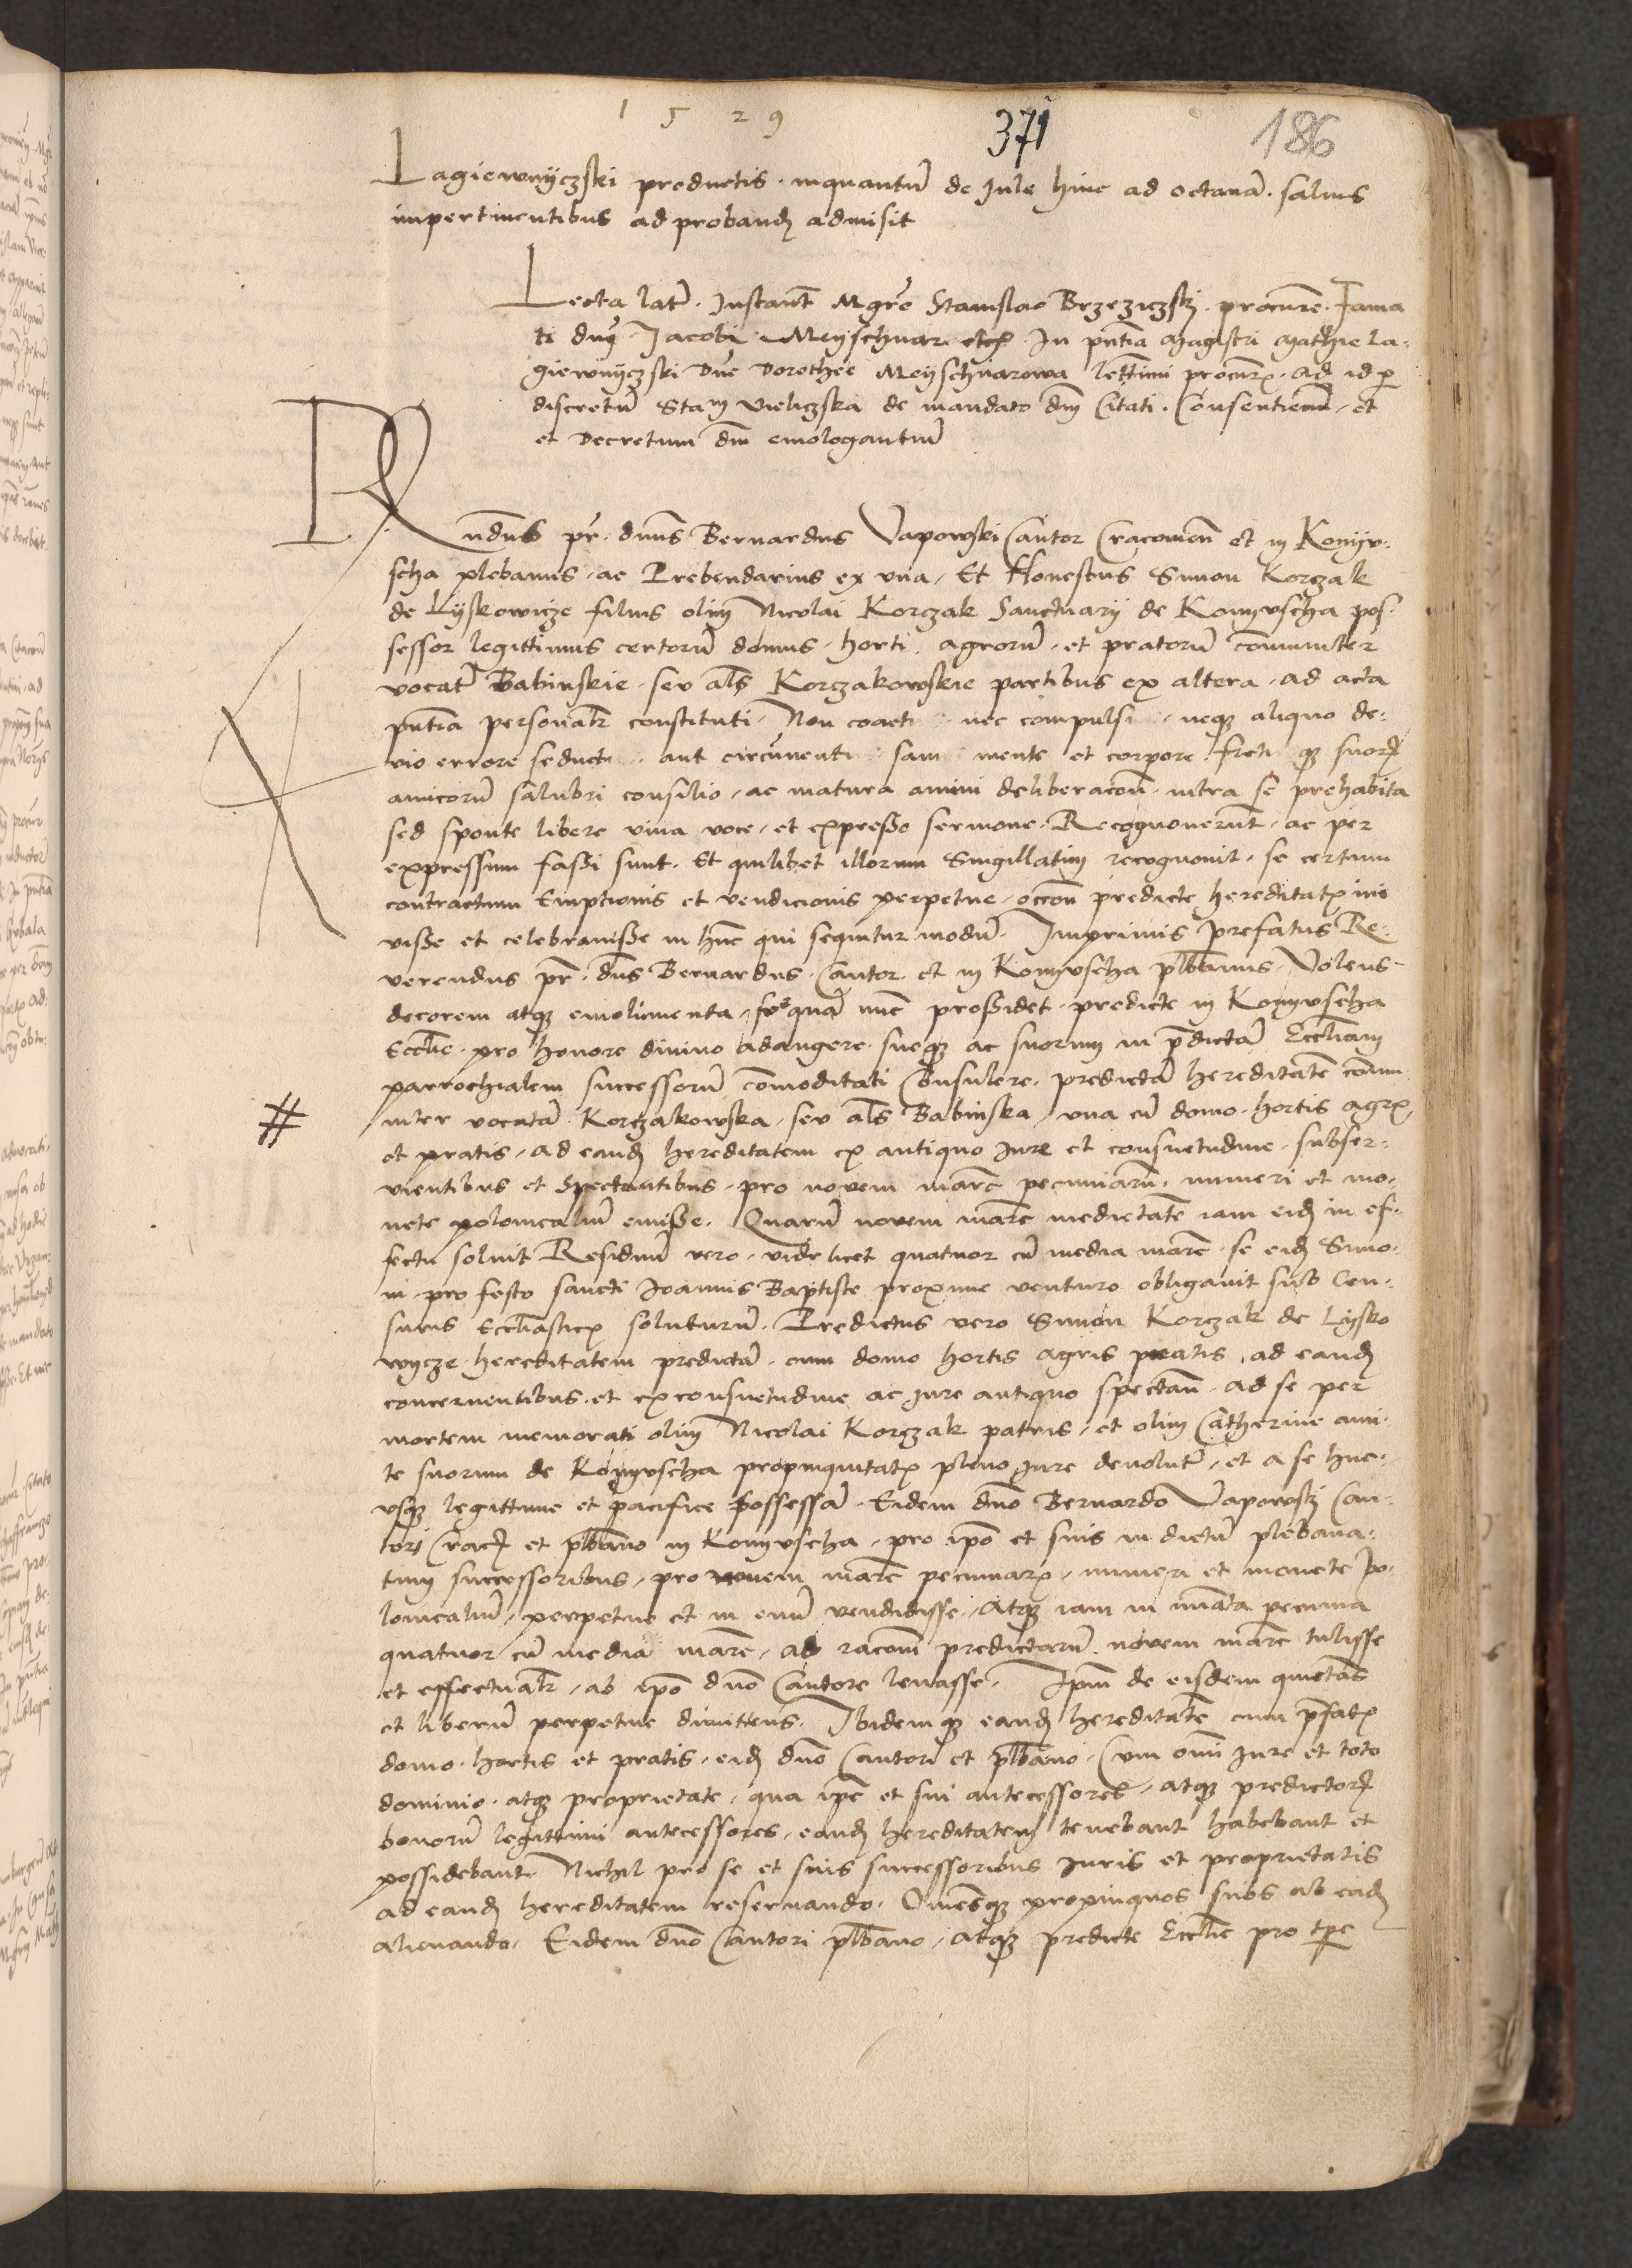 1529
371
186
Lagiewnyczski productis · inquantum de Jure hinc ad octavam · salvis
impertinentibus ad proband admisit
Lecta latr · Instant Mgro Stanislao Brzeziczski · procure · Fama
ti dni Jacobi Meyschnar In pntia Magistri Mathie La-
giewnyczski Dne Dorothee Meyschnarowa lettimi procur · Ad id p
discretum Stam Vieliczska de mandato dni Citati · Consentienti et
et Decretum dni emologantium
Rndus pr · dnus Bernardus Vapowski Cantor Cracovien et in Konyv-
scha plebanus · ac Prebendarius ex una, Et Honestus Simon Korczak
de Lyskowicze filius olim Nicolai Korczak Sanctuarij de Konyvscha pos-
sessor legittimus certorum domus · horti · agrorum · et pratorum communiter
vocatr Babinskie · seu als Korczakowskie partibus ex altera · ad acta
pntia personalr constituti · Non coacti nec compulsi · neque aliquo de-
vio errore seducti aut circumventi sani mente et corpore freti que suorum
amicorum salubri consilio, ac matura animi deliberacon · intra se prehabita
sed sponte libere viva voce, et expresso sermone · Recognoverunt, ac per
expressum fassi sunt · Et quilibet illorum Singillatim recognovit · se certum
contractum Emptionis et vendicionis perpetue, occon predicte hereditatis ini
visse et celebravisse in hunc qui sequitur modum · Imprimis prefatus Re-
verendus pr · dns Bernardus · Cantor et in Konyvscha plbanus · Volens
decorem atque emolumenta, quam nunc possidet · predicte in Konyvscha
Ecclie · pro honore divino adaugere · sueque ac suorum in predictam Eccliam
parrochialem successorum commoditati Consulere · predictam hereditatem comm
uniter vocatam Korczakowska, seu als Babinska, una cum domo · hortis agris
# et pratis, ad eand hereditatem ex antiquo Jure et consuetudine · subser-
vientibus et Spectantibus, pro novem marc pecuniarum · numeri et mo-
nete polonicalium emisse · Quarum novem marc medietatem iam eid in ef-
fectu solvit Residuum vero, videlicet quatuor cum media marc · se eid Simo-
ni pro festo sancti Joannis Baptiste proxime venturo obligavit sub Cen-
suris Eccliasticis soluturum · Predictus vero Simon Korczak de Lysko
wycze hereditatem predictam · cum domo hortis agris pratis, ad eand
concernentibus · et ex consuetudine ac Jure antiquo spectan · ad se per
mortem memorati olim Nicolai Korczak patris, et olim Catherine ami-
te suorum de Konyvscha propinquitatis pleno Jure devolutr, et a se huc-
usque legittime et pacifice possessam · Eidem dno Bernardo Vapowski Can-
tori Crac et plbano in Konyvscha, pro ipo et suis in dictum plebana-
tum successoribus, pro novem marc pecuniaru, numeri et monete po-
lonicalium, perpetue et in evum vendidisse, Atque iam in numerata pecunia
quatuor cum media marc, ad racoem predictarum novem marc tulisse
et effectualr, ab ipo dno Cantore levasse · Ipm de eisdem quietans
et liberum perpetue dimittens · Ibidemque eand hereditatem cum prefatis
domo · hortis et pratis, eid dno Cantori et plbano · Cum omni Jure et toto
dominio · atque proprietate, qua ipe et sui antecessores, atque predictorum
bonorum legittimi antecessores, eand hereditatem tenebant habebant et
possidebant Nichil pro se et suis successoribus Juris et proprietatis
ad eand hereditatem reservando · Omnesque propinquos suos ab ead
alienando, Eidem dno Cantori plbano, atque predicte Ecclie pro tpe